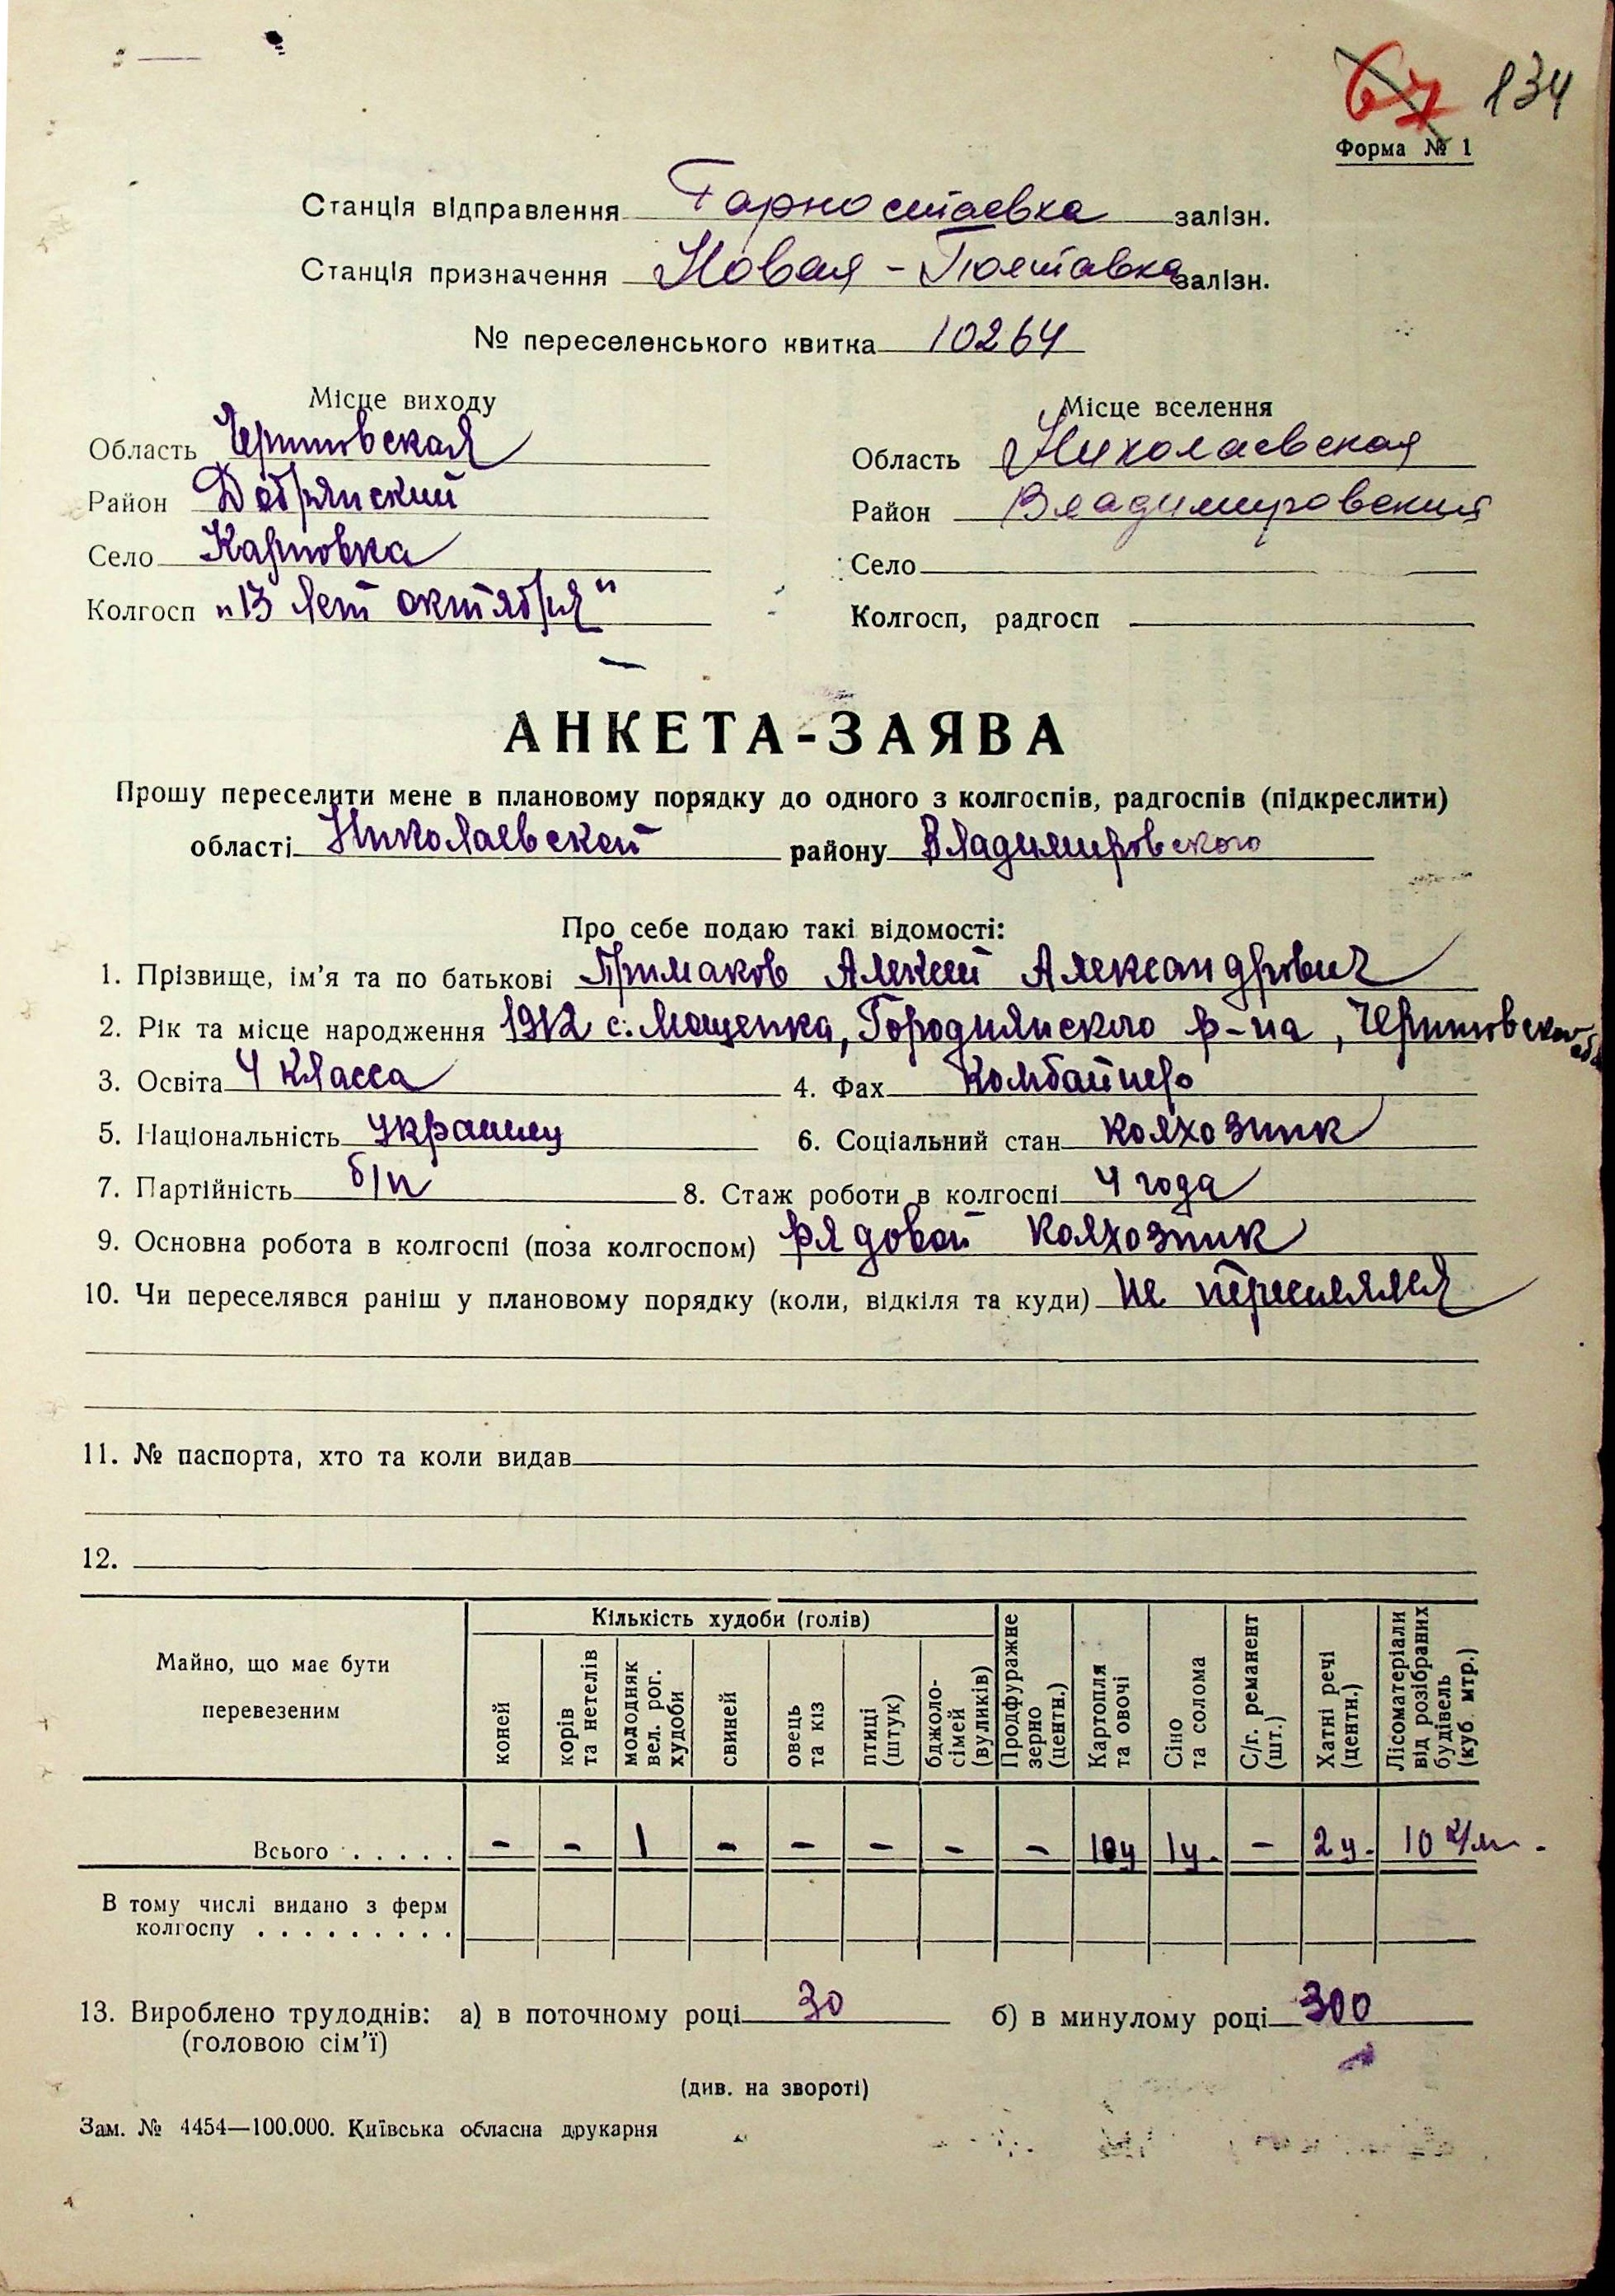 67 134
Форма № 1
Станція відправлення Горностаевка залізн.
Станція призначення Новая-Полтавка залізн.
№ переселенського квитка 10264
Місце виходу
Область Черниговская
Район Добрянский
Село Карповка
Колгосп "13 лет октября"
Місце вселення
Область Николаевская
Район Владимировский
Село
Колгосп, радгосп
АНКЕТА-ЗАЯВА
Прошу переселити мене в плановому порядку до одного з колгоспів, радгоспів (підкреслити)
області Николаевской району Владимировского
Про себе подаю такі відомості:
1. Прізвище, ім'я та по батькові Примаков Алексей Александрович
2. Рік та місце народження 1912 с. Мощенка, Городнянского р-на, Черниговской обл
3. Освіта 4 класса 4. Фах Комбайнер
5. Національність украинец 6. Соціальний стан колхозник
7. Партійність б/п 8. Стаж роботи в колгоспі 4 года
9. Основна робота в колгоспі (поза колгоспом) рядовой колхозник
10. Чи переселявся раніш у плановому порядку (коли, відкіля та куди) не переселялся
11. № паспорта, хто та коли видав
12.
Майно, що має бути перевезеним
Кількість худоби (голів)
коней
корів та нетелів
молодняк вел. рог. худоби
свиней
овець та кіз
птиці (штук)
бджоло-сімей (вуликів)
Продфуражне зерно (центн.)
Картопля та овочі
Сіно та солома
С/г. реманент (шт.)
Хатні речі (центн.)
Лісоматеріали від розібраних будівель (куб. мтр.)
Всього . . . . . - - 1 - - - - - 10ц 1ц. - 2ц. 10 к/м.
В тому числі видано з ферм
колгоспу . . . . . . . . .
13. Вироблено трудоднів: а) в поточному році 30 б) в минулому році 300
(головою сім'ї)
(див. на звороті)
Зам. № 4454—100.000. Київська обласна друкарня